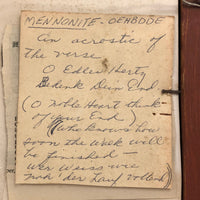 MENNONITE - OEHBDDE
An acrostic of
the verse
O Edles Hertz
Bedenk Dein End
(O Noble Heart think
of your End)
(Who knows how
soon the work will
be finished —
Wer Weiss wie
der Lauf vollend)